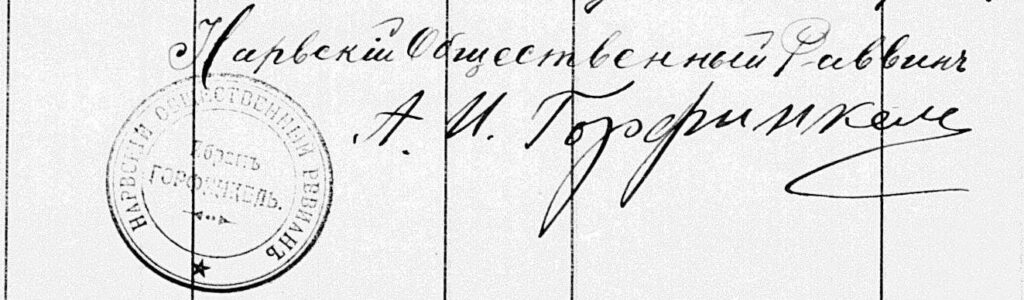 Нарвскій Общественный Раввинъ
А. И. Горфинкель
НАРВСКІЙ ОБЩЕСТВЕННЫЙ
ГОРФИНКЕЛЬ.